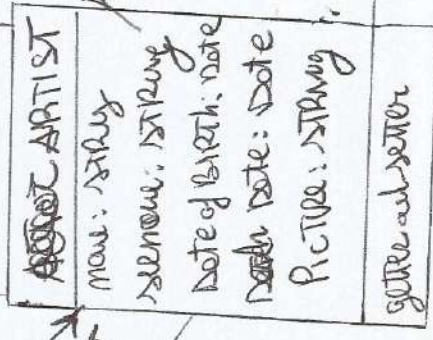 ARTIST
name: STRing
surname: STRing
Date of BIRTh: Date
Death Date: Date
PicTURe: STRing
getter and setter